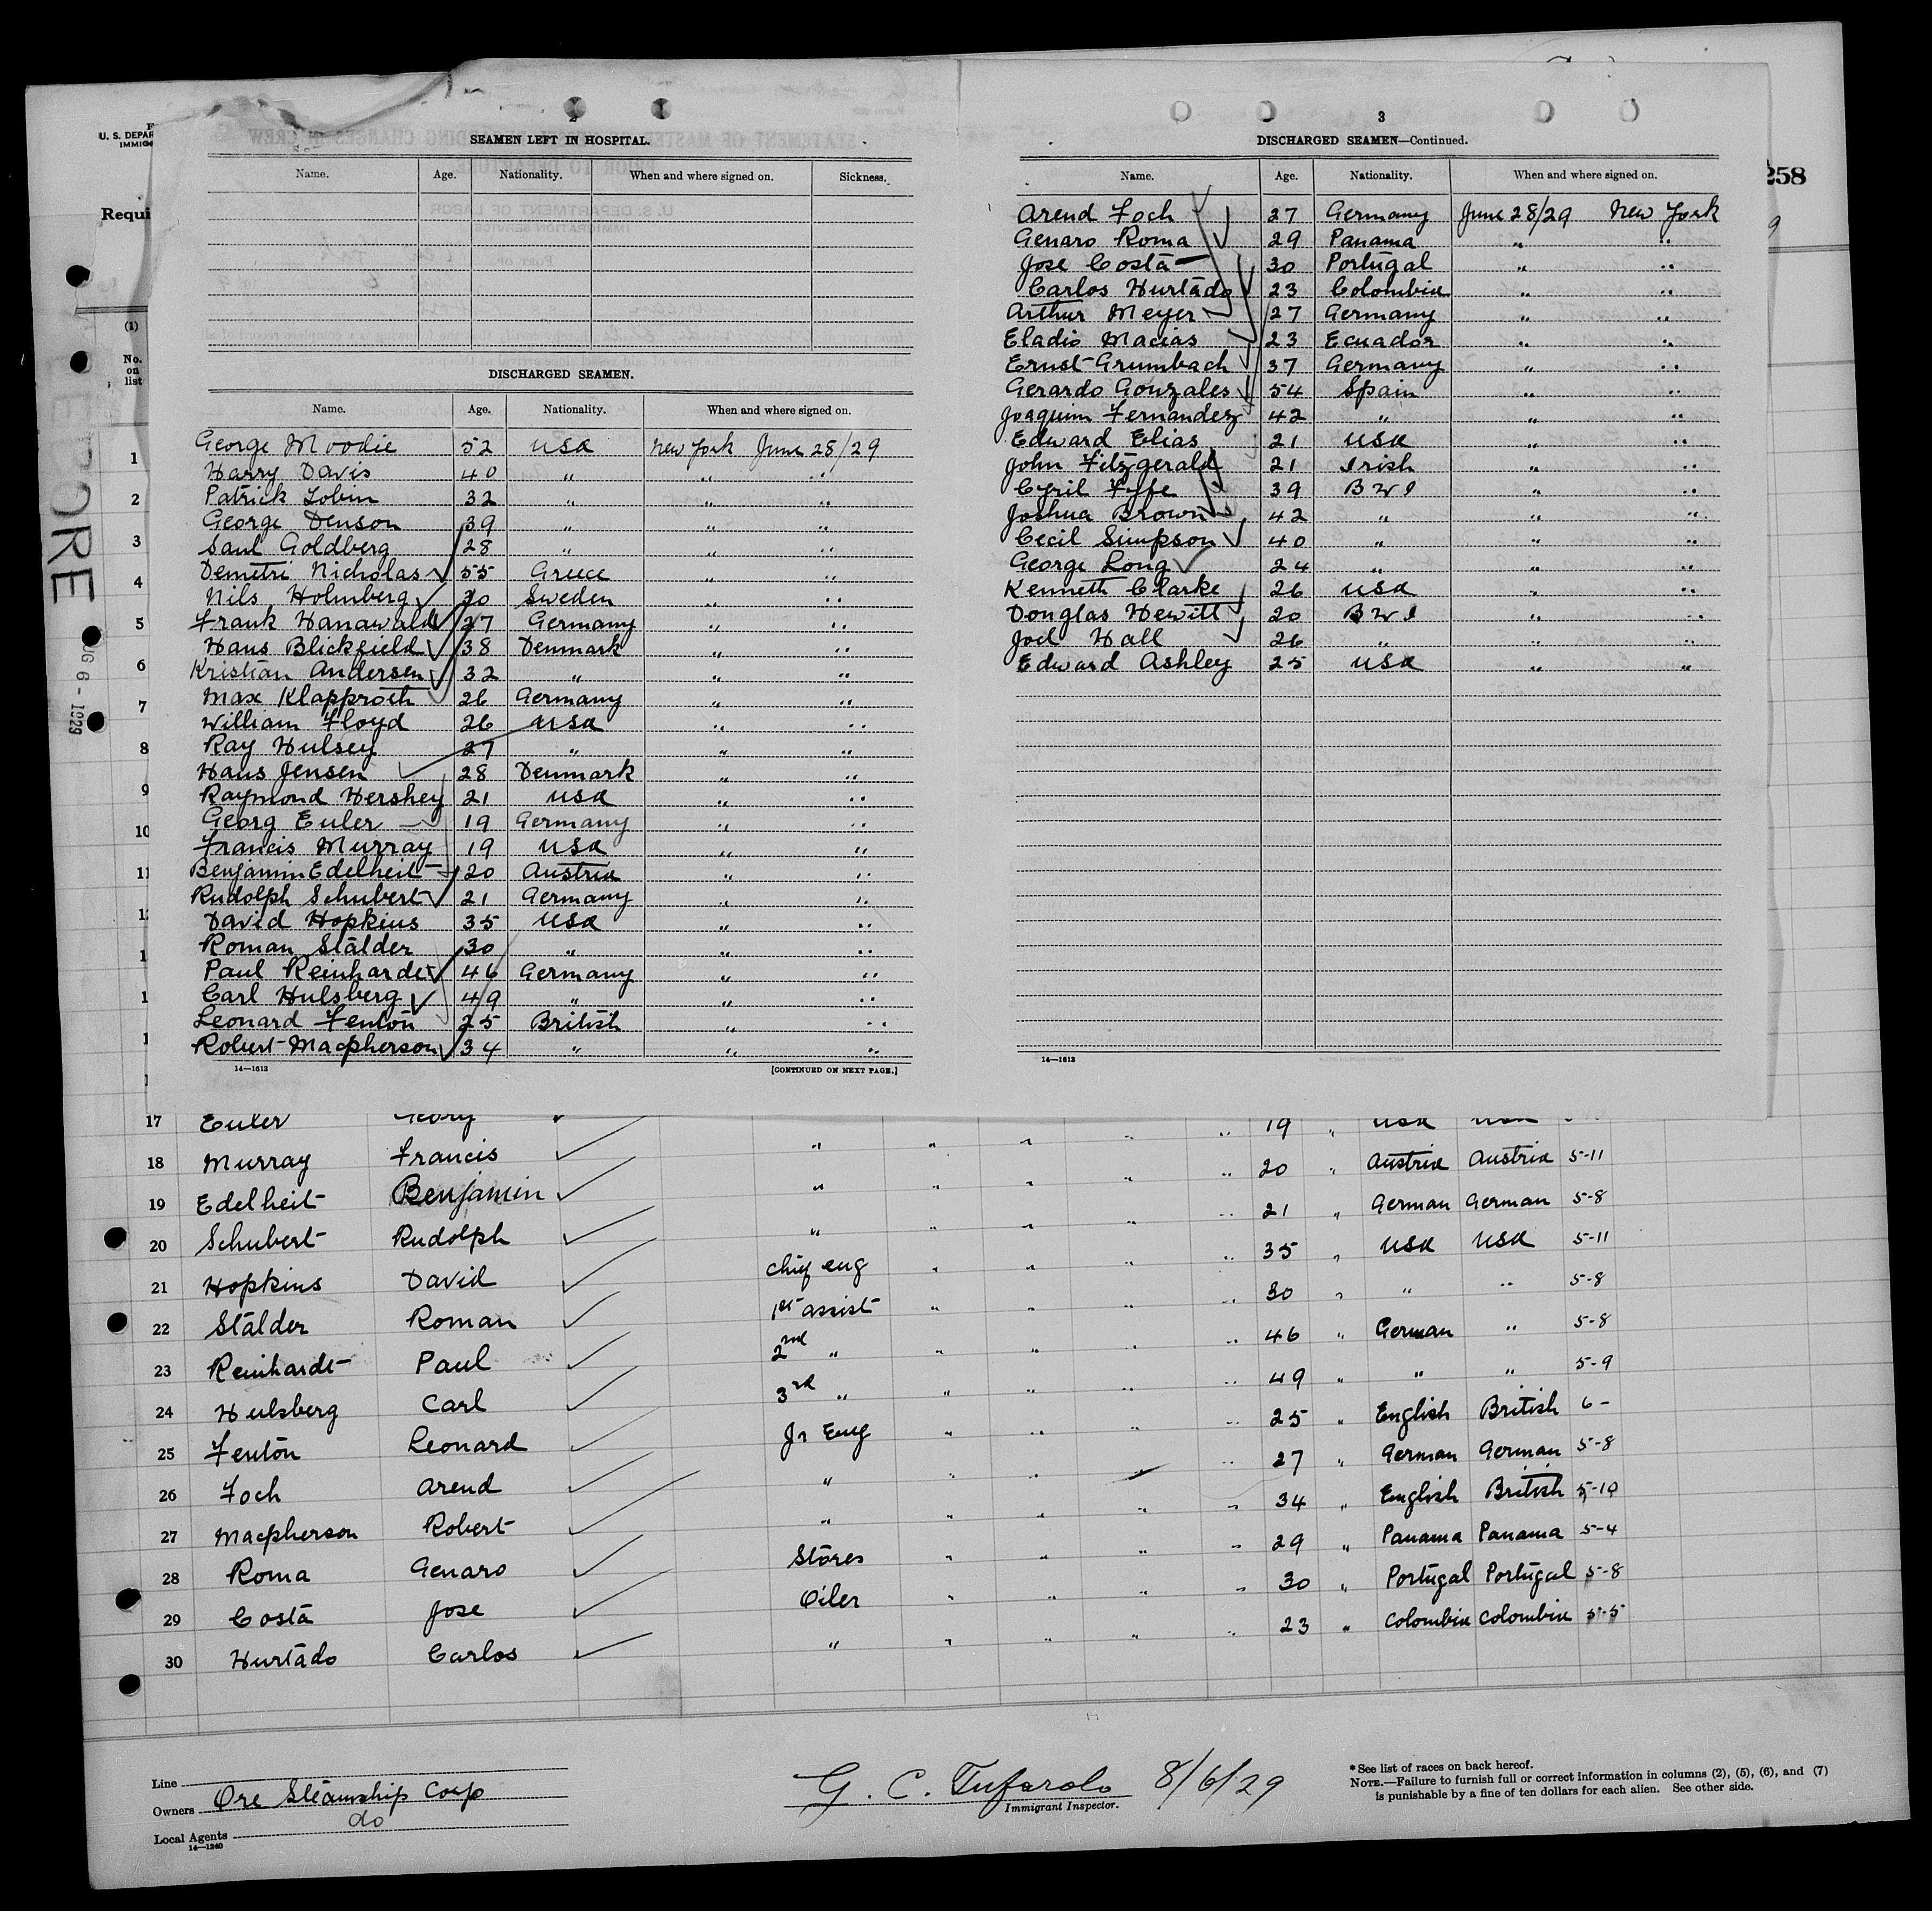 U. S. DEPAR
IMMIG
Requi
258
(1)
No.
on
list
ORE
UG 6 - 1929
2
SEAMEN LEFT IN HOSPITAL.
Name. Age. Nationality. When and where signed on. Sickness.
DISCHARGED SEAMEN.
Name. Age. Nationality. When and where signed on.
George Moodie 52 USA New York June 28/29
Harry Davis 40 " " "
Patrick Tobin 32 " " "
George Denson 39 " " "
Saul Goldberg 28 " " "
Demetri Nicholas 55 Greece " "
Nils Holmberg 30 Sweden " "
Frank Hanawald 27 Germany " "
Hans Blickfield 38 Denmark " "
Kristian Andersen 32 " " "
Max Klapproth 26 Germany " "
William Floyd 26 USA " "
Ray Hulsey 27 " " "
Hans Jensen 28 Denmark " "
Raymond Hershey 21 USA " "
Georg Euler 19 Germany " "
Francis Murray 19 USA " "
Benjamin Edelheit 20 Austria " "
Rudolph Schubert 21 Germany " "
David Hopkins 35 USA " "
Roman Stalder 30 " " "
Paul Reinhardt 46 Germany " "
Carl Hulsberg 49 " " "
Leonard Fenton 25 British " "
Robert Macpherson 34 " " "
14—1613
[CONTINUED ON NEXT PAGE.]
3
DISCHARGED SEAMEN—Continued.
Name. Age. Nationality. When and where signed on.
Arend Foch 27 Germany June 28/29 New York
Genaro Roma 29 Panama " "
Jose Costa 30 Portugal " "
Carlos Hurtado 23 Colombia " "
Arthur Meyer 27 Germany " "
Eladio Macias 23 Ecuador " "
Ernst Grumbach 37 Germany " "
Gerardo Gonzales 54 Spain " "
Joaquim Fernandez 42 " " "
Edward Elias 21 USA " "
John Fitzgerald 21 Irish " "
Cyril Fyfe 39 BWI " "
Joshua Brown 42 " " "
Cecil Simpson 40 " " "
George Long 24 " " "
Kenneth Clarke 26 USA " "
Douglas Hewitt 20 BWI " "
Joel Hall 26 " " "
Edward Ashley 25 USA " "
14—1613
1
2
3
4
5
6
7
8
9
10
11
17 Euler Georg 19 " USA USA
18 Murray Francis " " " " " 20 " Austria Austria 5-11
19 Edelheit Benjamin " " " " " 21 " German German 5-8
20 Schubert Rudolph " " " " " 35 " USA USA 5-11
21 Hopkins David Chief eng " " " " 30 " " " 5-8
22 Stalder Roman 1st assist " " " " 46 " German " 5-8
23 Reinhardt Paul 2nd " " " " " 49 " " " 5-9
24 Hulsberg Carl 3rd " " " " " 25 " English British 6-
25 Fenton Leonard Jr Eng " " " " 27 " German German 5-8
26 Foch Arend " " " " " 34 " English British 5-10
27 Macpherson Robert " " " " " 29 " Panama Panama 5-4
28 Roma Genaro Stores " " " " 30 " Portugal Portugal 5-8
29 Costa Jose Oiler " " " " 23 " Colombia Colombia 5-5
30 Hurtado Carlos " " " "
Line
Owners Ore Steamship Corp
Local Agents do
14—1240
G. C. Tufarolo 8/6/29
Immigrant Inspector.
*See list of races on back hereof.
NOTE.—Failure to furnish full or correct information in columns (2), (5), (6), and (7)
is punishable by a fine of ten dollars for each alien. See other side.